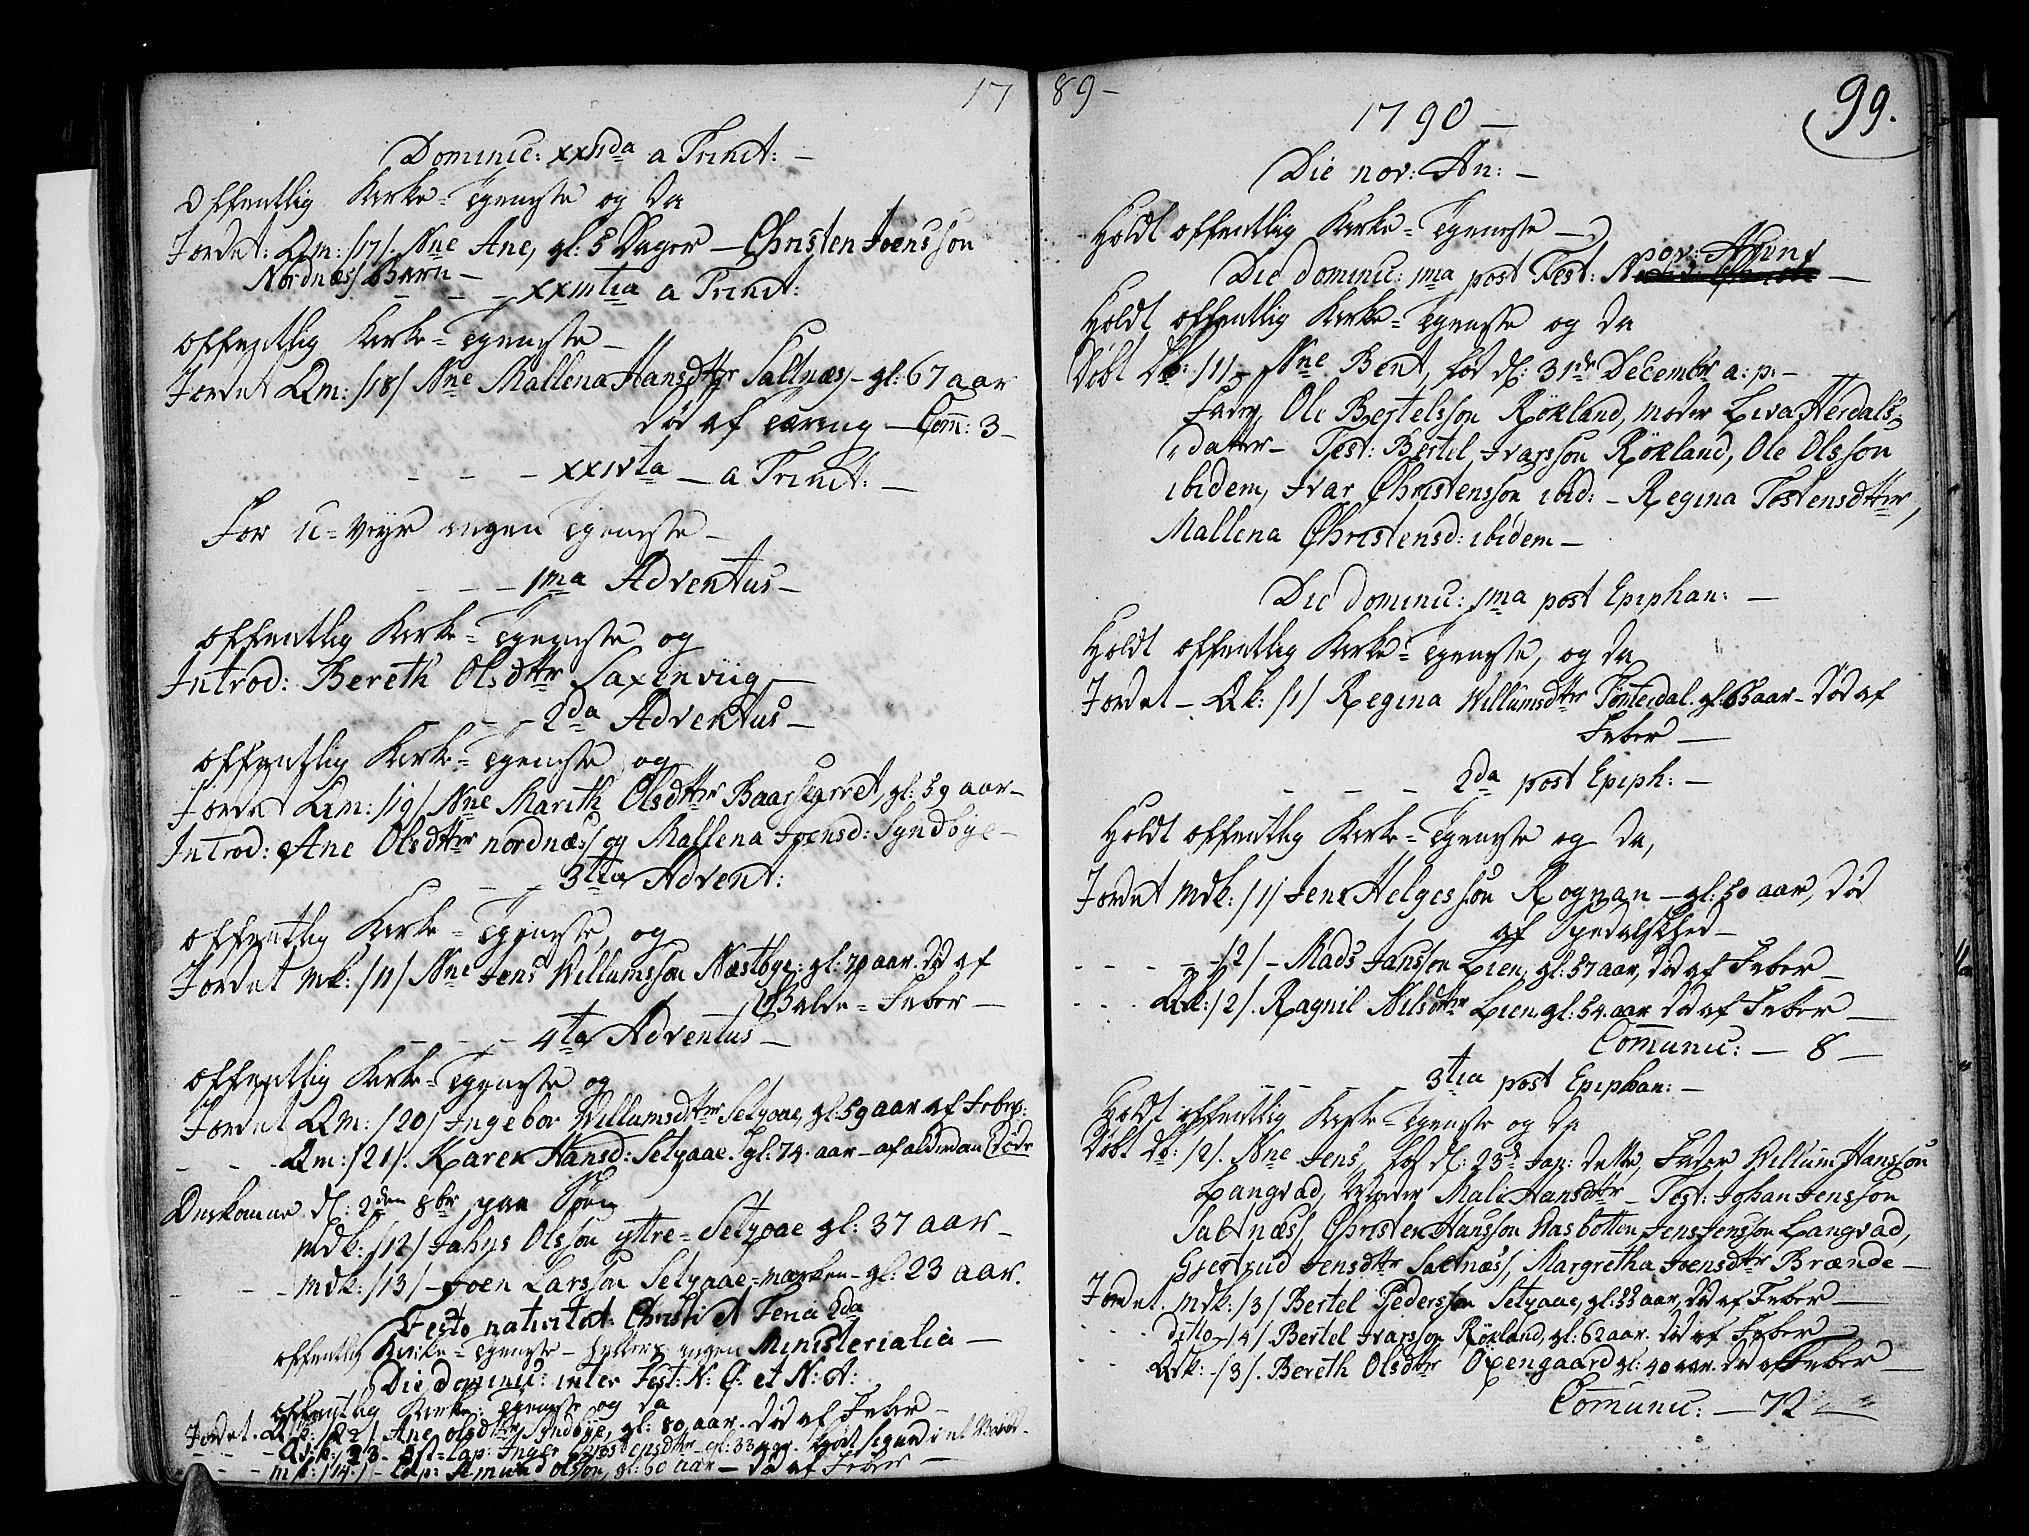 17
Dominic: XXIIda a Trinit: —
Offentlig Kirke-Tjeneste og da
Jordet: Qm: /17/. Nne Ane, gl: 5 Dager — Christen Joensson
Nordnæs/ Barn —
— — — XXIIItia a Trinit:
offentlig Kirke-Tjeneste —
Jordet Qm: /18/ Nne Mallena Hansdttr Saltnæs/ — gl: 67 aar
død af tæring — Com: 3 —
— — — XXIVta — a Trinit: —
For U-veyr ingen Tjeneste —
— — — 1ma Adventus —
offentlig Kirke-Tjeneste og
Introd: Bereth Olsdttr Saxenviig —
— — — 2da Adventus —
offentlig Kirke-Tjeneste og
Jordet Qm: /19/ Nne Marith Olsdttr Baarsegrret, gl: 59 aar —
Introd: Ane Olsdttr nordnæs/ og Mallena Joensd: Syndbye —
— — 3tia Advent:
offentlig Kirke-Tjeneste, og
Jordet Mk: /11/ Nne Jens Willumsson Næstbye: gl: 70 aar. død af
Galde-Feber —
— — — 4ta Adventus —
offentlig Kirke-Tjeneste og
Jordet Qm: /20/ Ingebor Willumsdttr Setzaae, gl: 59 aar af Feber:
— — Qm: /21/. Karen Hansd: Setzaae. gl: 74. aar — af alderdom døde
Omkomne d: 2den 8br paa Søen
Mdk: /12/ Jahns Olsson yttre-Setzaae gl: 37 aar —
— — — Mdk: /13/ — Joen Larsson Setzaae-marken — gl: 23 aar.
Festo nativitat: Christi et Feria 2da
offentlig Kirke-Tjeneste — ellers ingen Ministerialia —
Die dominic: inter Fest: N: C: et N: A:
offentlig Kirke-Tjeneste og da
Jordet. Qk: /22/ Ane olsdttr Syndbye, gl: 80 aar. død af Feber —
— — Qk: 23. Øst-lap: Inger Christensdttr — gl: 33 aar.
— — mk: /14./ — Lap: Amund olsson, gl: 60 aar — død af Feber —
89 —
99.
1790 —
Die nov: An: —
Holdt offentlig Kirke-Tjeneste —
nov: Anni
Die dominic: 1ma post Fest: —
Holdt offentlig Kirke-Tjeneste og da
Døbt Db: /1/ — Nne Bent, fød d: 31de Decembr a: p: —
Fader, Ole Bertelsson Rökland, moder Liva Herdals
datter — Test: Bertel Ivarsson Rökland, Ole Olsson
ibidem, Ivar Christensson ibid: — Regina Tostensdttr,
Mallena Christensd: ibidem —
Die dominic: 1ma post Epiphan: —
Holdt offentlig Kirke-Tjeneste, og da
Jordet — Qk: /1/ Regina Willumsdttr Tömerdal. gl: 65 aar — død af
Feber —
— — — 2da post Epiph: —
Holdt offentlig Kirke-Tjeneste og da,
Jordet Mdk: /1/ Jens Helgesson Rognan — gl: 50 aar, død
af Spedalskhed —
— — — — /2/ — Mads Jansson Lien, gl: 57 aar, død af Feber —
— — Qk: /2/. Ragnil Nilsdttr Lien gl: 54. aar død af Feber —
Comunic: — 8 —
— — — 3tia post Epiphan: —
Holdt offentlig Kirke-Tjeneste og da
Døbt Db: /2/. Nne Jens, fød d: 23d Jan: dette, Fader Willum Hansson
Langvad, Moder Mali Hansdttr — Test: Johan Jensson
Saltnæs/, Christen Hansson Aasbotten Jens Jensson Langvad,
Giertrud Jensdttr Saltnæs/, Margretha Joensdttr Brænde —
Jordet. Mdk: /3/ Bertel Pedersson Setzaae, gl: 38 aar, død af Feber —
— — ditto /4/ Bertel Ivarsson Rökland, gl: 62 aar. død af Feber —
— — Qdk: /3/. Bereth Olsdttr Oxengaard gl: 40 aar. død af Feber —
Comunic: — 72 —